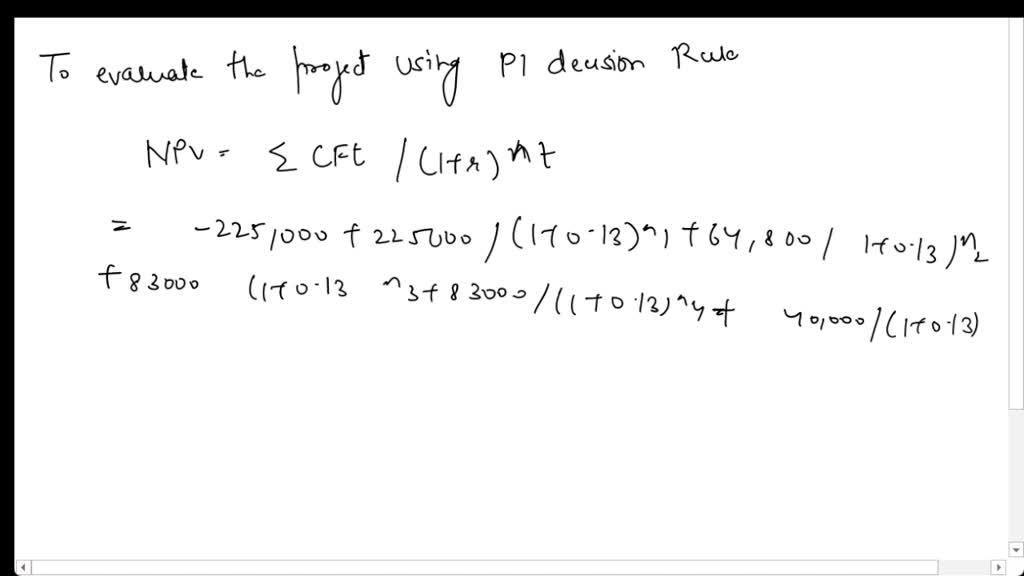 To evaluate the project using PI decision Rule
NPV = Σ CFt / (1+r) ^ t
= -225,000 + 225000 / (1+0.13)^1 + 64,800 / 1+0.13)^2
+ 83000 (1+0.13 ^3 + 83000 / (1+0.13)^4 + 40,000 / (1+0.13)